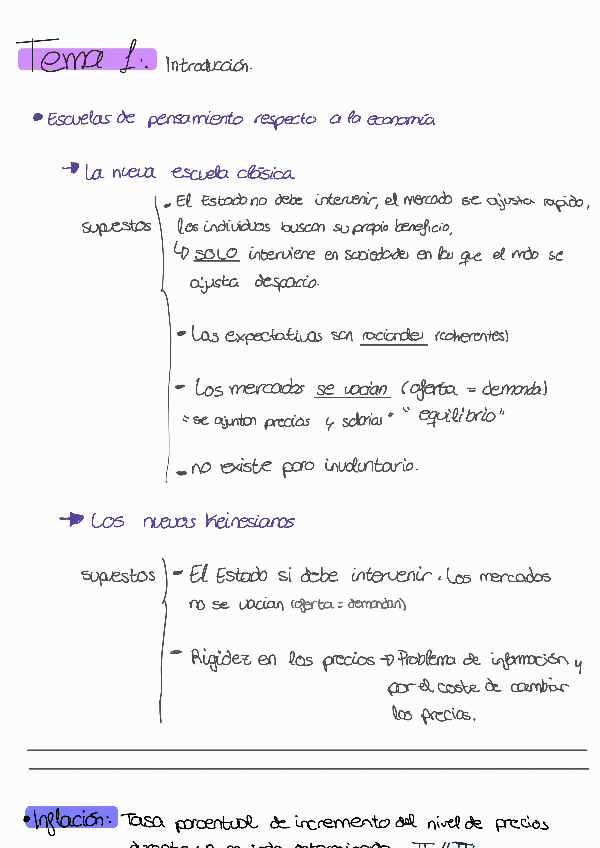 Tema 1. Introducción.
• Escuelas de pensamiento respecto a la economía
→ La nueva escuela clásica
supuestos
- El Estado no debe intervenir, el mercado se ajusta rapido,
los individuos buscan su propio beneficio,
↳ SOLO interviene en sociedades en las que el mdo se
ajusta despacio.
- Las expectativas son racionales (coherentes)
- Los mercados se vacian (oferta = demanda)
"se ajustan precios y salarios" "equilibrio"
- no existe paro involuntario.
→ Los nuevos Keinesianos
supuestos
- El Estado si debe intervenir. Los mercados
no se vacian (oferta = demandan)
- Rigidez en los precios → Problema de información y
por el coste de cambiar
los precios.
• Inflación: Tasa porcentual de incremento del nivel de precios